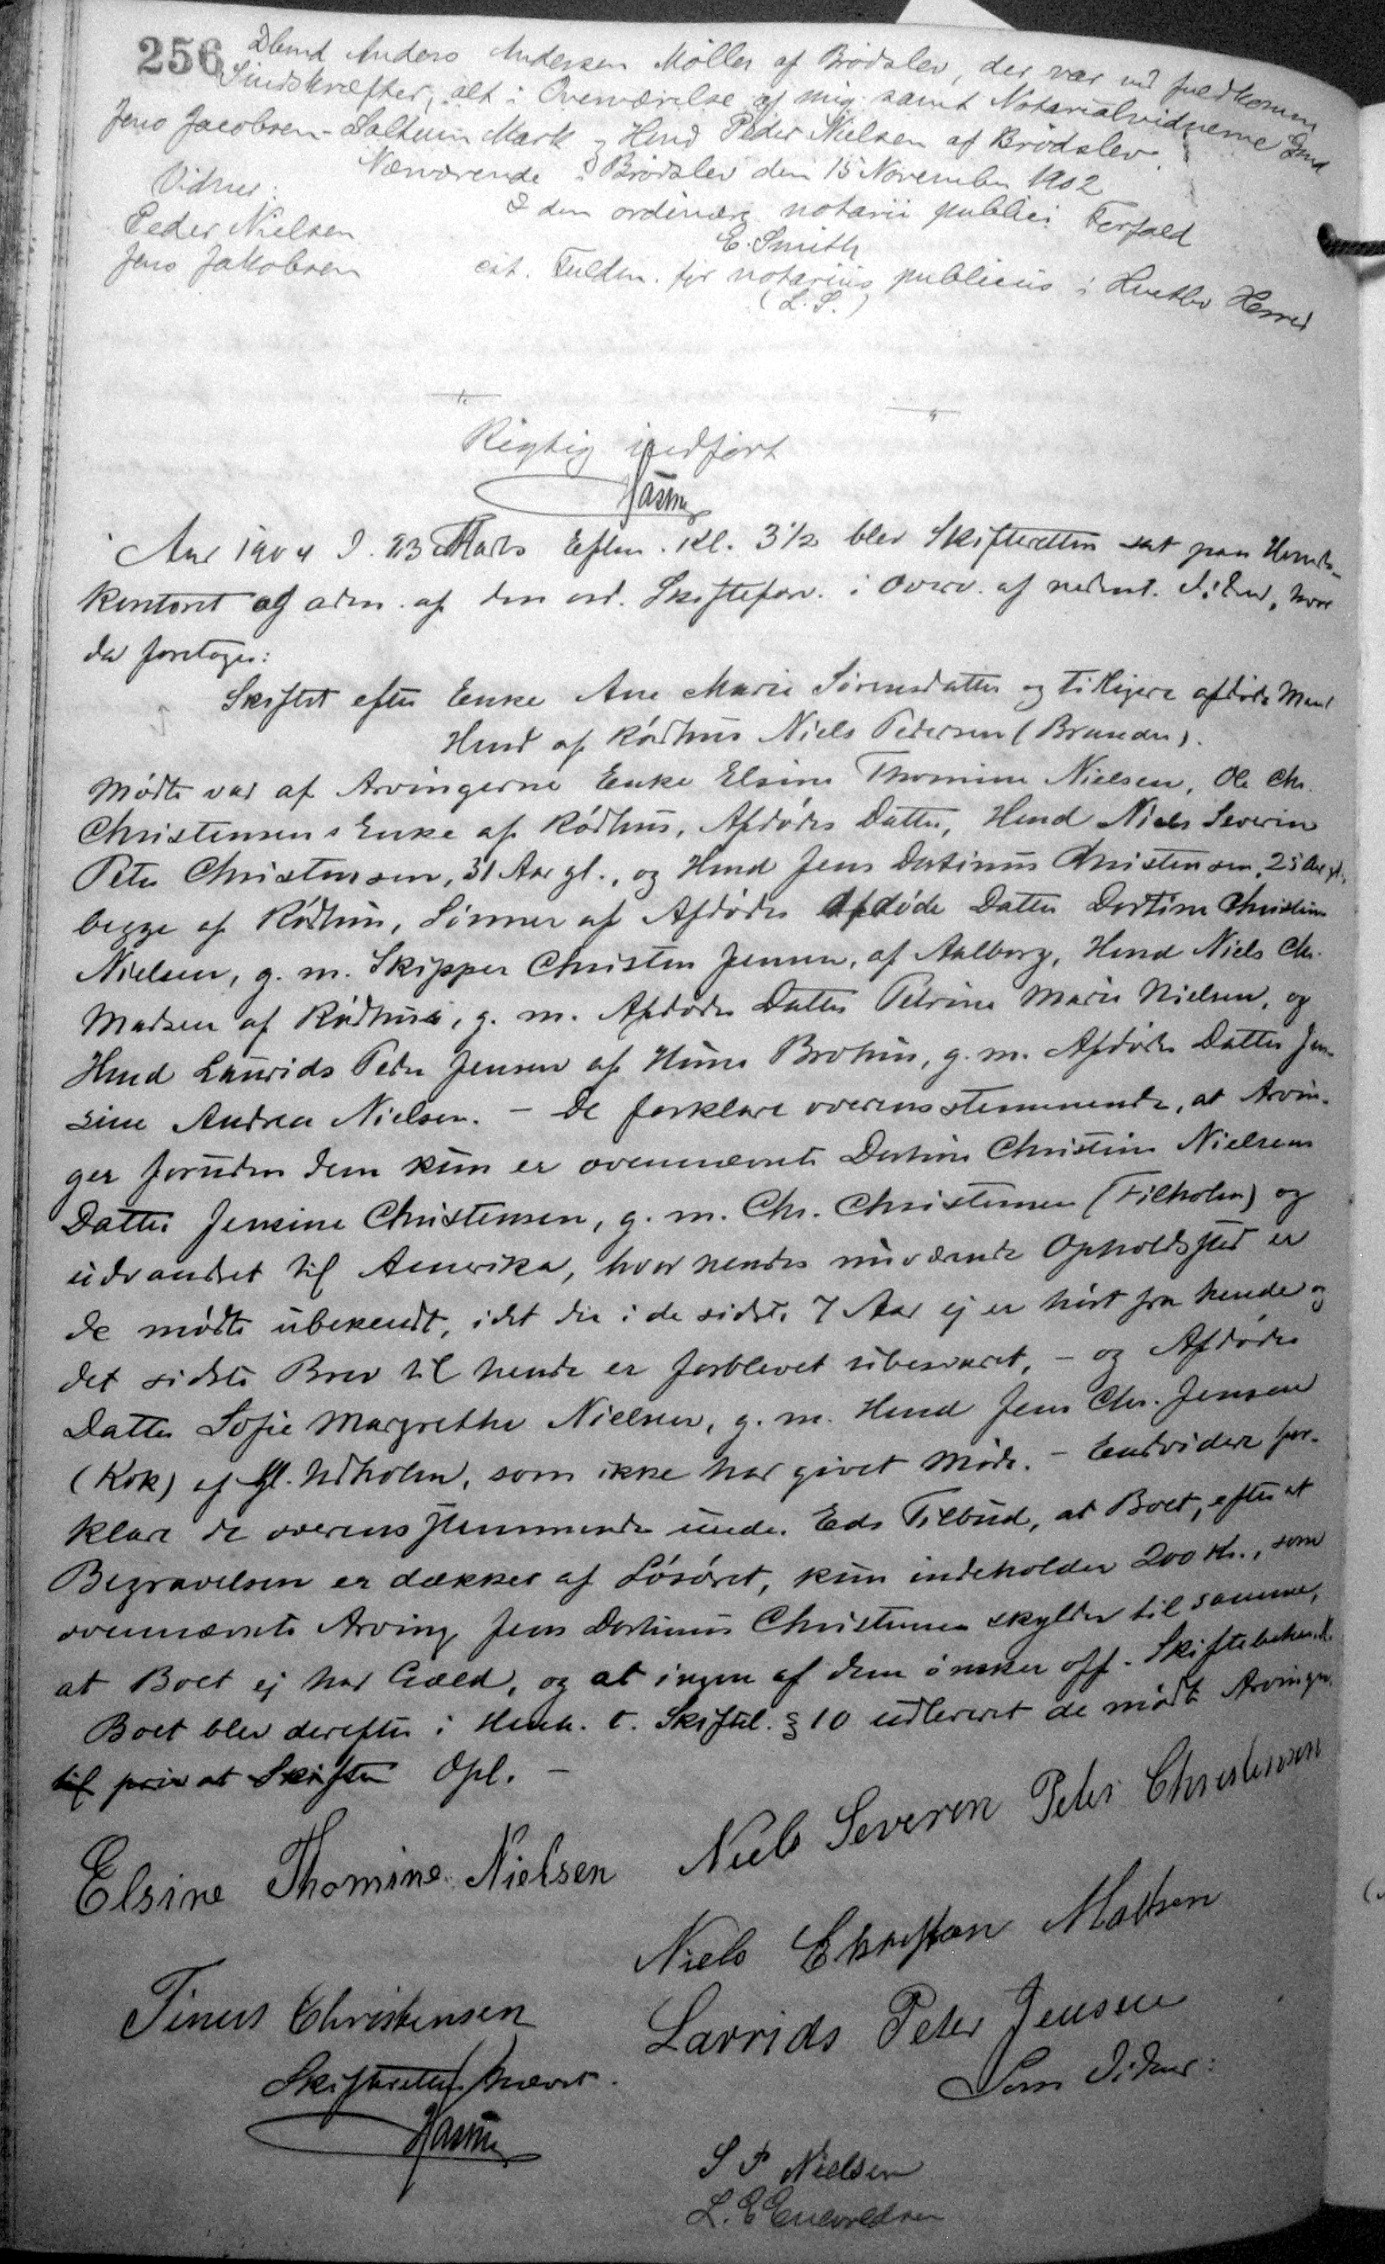 256
Dbmd Anders Andersen Møller af Brødslev, der var ved fuldkomne
Sindskræfter, alt i Overværelse af mig samt Notarialvidnerne Gmd
Jens Jacobsen - Saltum Mark og Hmd Peder Nielsen af Brødslev.
Nærværende i Brødslev den 15 November 1902
Vidner:
I den ordinære notarii publici Forfald
Peder Nielsen
E. Smith
Jens Jakobsen
cst. Fuldm. for notarius publicus i Hvetbo Herred
(L.S.)
Rigtig indført
Aar 1904 d. 23 Marts Eftm. Kl. 3½ blev Skifteretten sat paa Herreds-
kontoret og adm. af den ord. Skifteforv. i Overv. af nednt. Vidner, hvor
da foretoges:
Skiftet efter Enke Ane Marie Sørensdatter og tidligere afdøde Mand
Hmd af Rødhus Niels Pedersen (Brunder).
Mødte var af Arvingerne Enke Elsine Thomine Nielsen, Ole Chr.
Christensens Enke af Rødhus, Afdødes Datter, Hmd Niels Severin
Peter Christensen, 31 Aar gl., og Hmd Jens Dortinus Christensen, 25 Aar gl.,
begge af Rødhus, Sønner af Afdødes afdøde Datter Dortine Christine
Nielsen, g. m. Skipper Christen Jensen, af Aalborg, Hmd Niels Chr.
Madsen af Rødhus, g. m. Afdødes Datter Petrine Marie Nielsen, og
Hmd Laurids Peder Jensen af Hune Brohus, g. m. Afdødes Datter Jen-
sine Andrea Nielsen. - De forklare overensstemmende, at Arvin-
ger foruden dem kun er ovennævnte Dortine Christine Nielsens
Datter Jensine Christensen, g. m. Chr. Christensen (Filholm) og
udvandret til Amerika, hvor hendes nuværende Opholdssted er
de mødte ubekendt, idet der i de sidste 7 Aar ej er hørt fra hende og
det sidste Brev til hende er forblevet ubesvaret, - og Afdødes
Datter Sofie Margrethe Nielsen, g. m. Hmd Jens Chr. Jensen
(Kok) af Gl. Udholm, som ikke har givet Møde. - Endvidere for-
klare de overensstemmende under Eds Tilbud, at Boet, efter at
Begravelsen er dækket af Løsøret, kun indeholder 200 Kr., som
ovennævnte Arving Jens Dortinus Christensen skylder til samme,
at Boet ej har Gæld, og at ingen af dem ønsker off. Skiftebehandl.
Boet blev derefter i Henh. t. Skiftel. § 10 udleveret de mødte Arvinger
til privat Skifte Opl. -
Elsine Thomine Nielsen Niels Severin Peter Christensen
Niels Christian Madsen
Tinus Christensen
Lavrids Peter Jensen
Skifteretten hævet.
Som Vidner:
S P Nielsen
L. E Enevoldsen